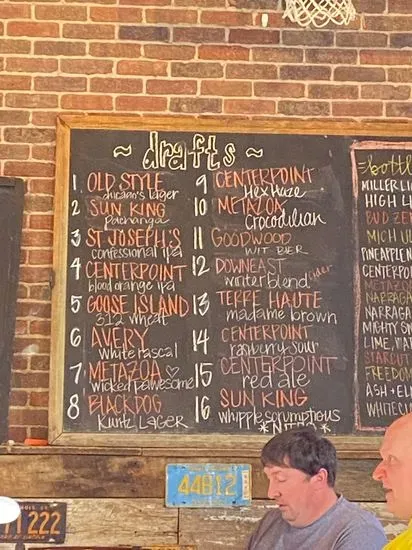 ~ drafts ~
1 OLD STYLE
chicago's lager
2 SUN KING
pachanga
3 ST JOSEPH'S
confessional ipa
4 CENTERPOINT
blood orange ipa
5 GOOSE ISLAND
312 wheat
6 AVERY
white rascal
7 METAZOA ♡
wicked pawesome
8 BLACKDOG
Kuntz LAGER
9 CENTERPOINT
Hex Haze
10 METAZOA
Crocodilian
11 GOODWOOD
WIT BIER
12 DOWNEAST
winter blend cider
13 TERRE HAUTE
madame brown
14 CENTERPOINT
raspberry sour
15 CENTERPOINT
red ale
16 SUN KING
whipplescrumptious
*NITRO*
bottl
MILLER LI
HIGH L
BUD ZE
MICH UL
PINEAPPLE
CENTERPO
METAZO
NARRAG
NARRAGA
MIGHTY S
LIME, MA
STARCUT
FREEDOM
ASH + EL
WHITE CL
44B12
1 222